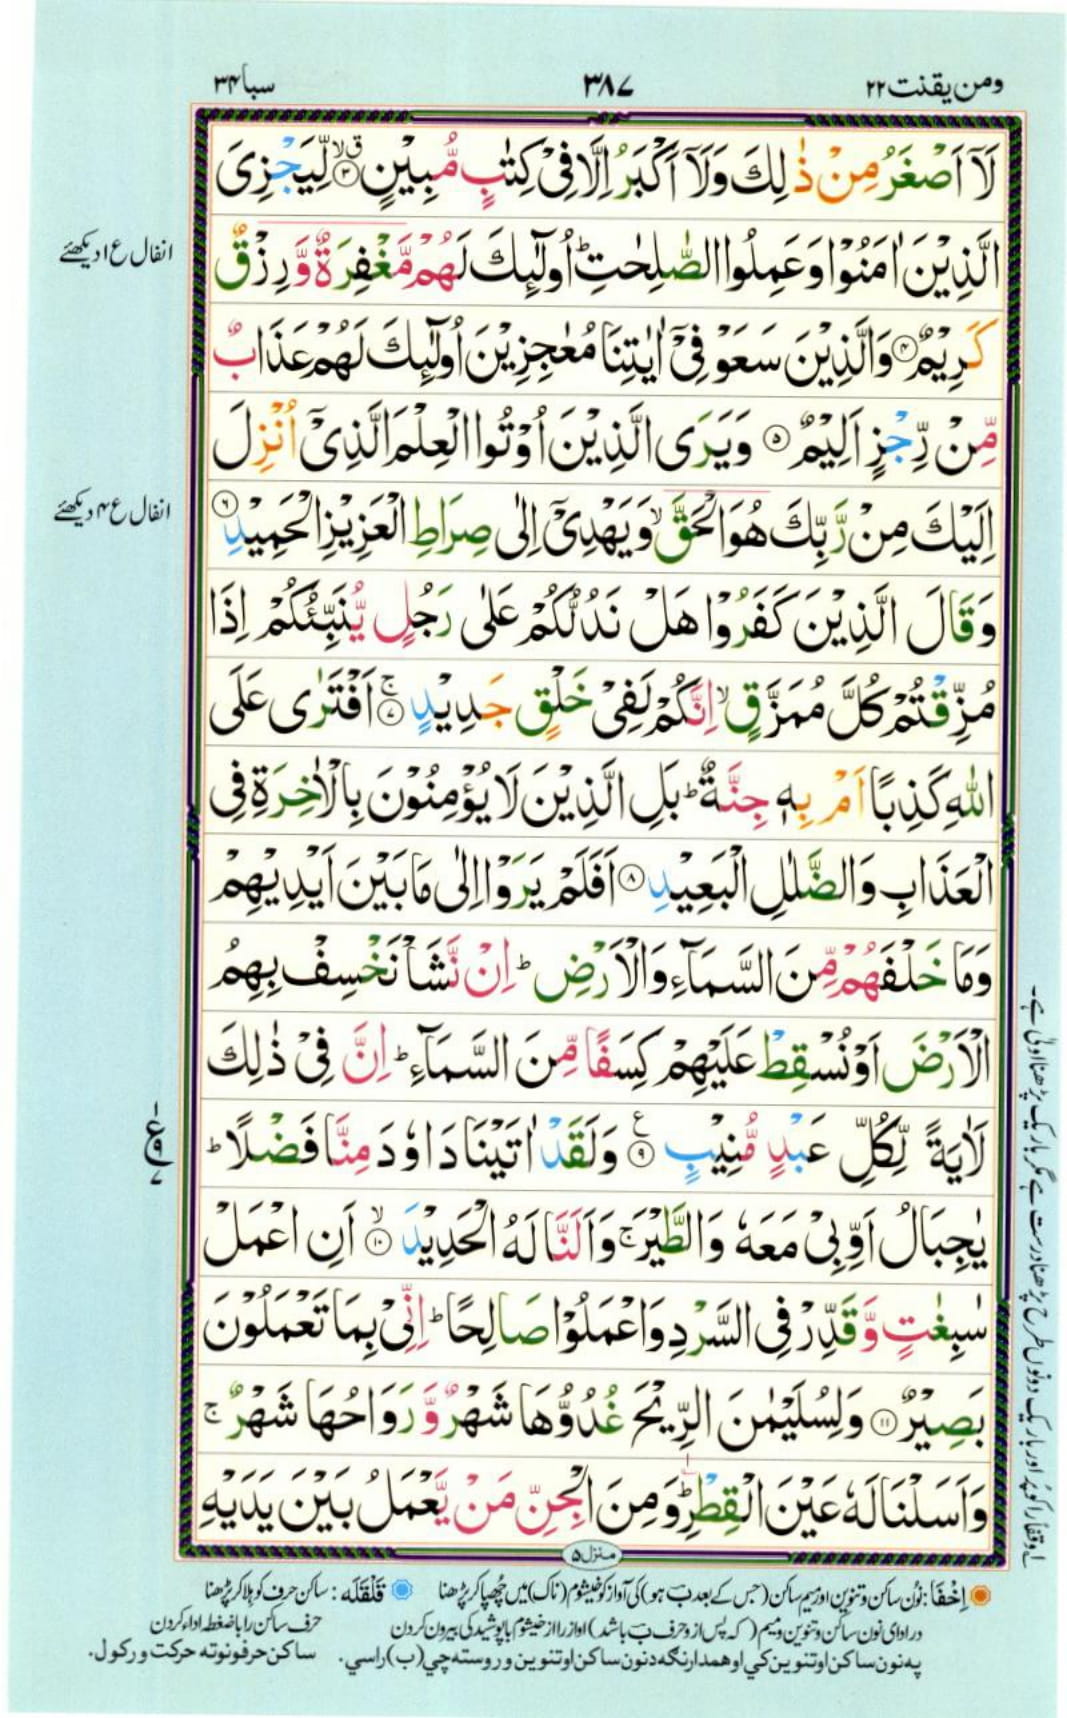 ومن یقنت ۲۲
۳۸۷
سبا ۳۴
لَاۤ اَصْغَرُ مِنْ ذٰلِكَ وَلَاۤ اَكْبَرُ اِلَّا فِیْ كِتٰبٍ مُّبِیْنٍ ۙق۳ لِّیَجْزِیَ
الَّذِیْنَ اٰمَنُوْا وَعَمِلُوا الصّٰلِحٰتِ ؕ اُولٰٓئِكَ لَهُمْ مَّغْفِرَةٌ وَّرِزْقٌ
انفال ع ۱ دیکھئے
كَرِیْمٌ ۴ وَالَّذِیْنَ سَعَوْ فِیْۤ اٰیٰتِنَا مُعٰجِزِیْنَ اُولٰٓئِكَ لَهُمْ عَذَابٌ
مِّنْ رِّجْزٍ اَلِیْمٌ ۵ وَیَرَی الَّذِیْنَ اُوْتُوا الْعِلْمَ الَّذِیْۤ اُنْزِلَ
اِلَیْكَ مِنْ رَّبِّكَ هُوَ الْحَقَّ ۙ وَیَهْدِیْۤ اِلٰی صِرَاطِ الْعَزِیْزِ الْحَمِیْدِ ۶
انفال ع ۴ دیکھئے
وَقَالَ الَّذِیْنَ كَفَرُوْا هَلْ نَدُلُّكُمْ عَلٰی رَجُلٍ یُّنَبِّئُكُمْ اِذَا
مُزِّقْتُمْ كُلَّ مُمَزَّقٍ ۙ اِنَّكُمْ لَفِیْ خَلْقٍ جَدِیْدٍ ۚ۷ اَفْتَرٰی عَلَی
اللّٰهِ كَذِبًا اَمْ بِهٖ جِنَّةٌ ؕ بَلِ الَّذِیْنَ لَا یُؤْمِنُوْنَ بِالْاٰخِرَةِ فِی
الْعَذَابِ وَالضَّلٰلِ الْبَعِیْدِ ۸ اَفَلَمْ یَرَوْا اِلٰی مَا بَیْنَ اَیْدِیْهِمْ
وَمَا خَلْفَهُمْ مِّنَ السَّمَآءِ وَالْاَرْضِ ؕ اِنْ نَّشَاْ نَخْسِفْ بِهِمُ
الْاَرْضَ اَوْ نُسْقِطْ عَلَیْهِمْ كِسَفًا مِّنَ السَّمَآءِ ؕ اِنَّ فِیْ ذٰلِكَ
لَاٰیَةً لِّكُلِّ عَبْدٍ مُّنِیْبٍ ۹ع وَلَقَدْ اٰتَیْنَا دَاوٗدَ مِنَّا فَضْلًا ؕ
یٰجِبَالُ اَوِّبِیْ مَعَهٗ وَالطَّیْرَ ۚ وَاَلَنَّا لَهُ الْحَدِیْدَ ۙ۱۰ اَنِ اعْمَلْ
سٰبِغٰتٍ وَّقَدِّرْ فِی السَّرْدِ وَاعْمَلُوْا صَالِحًا ؕ اِنِّیْ بِمَا تَعْمَلُوْنَ
بَصِیْرٌ ۱۱ وَلِسُلَیْمٰنَ الرِّیْحَ غُدُوُّهَا شَهْرٌ وَّرَوَاحُهَا شَهْرٌ ۚ
وَاَسَلْنَا لَهٗ عَیْنَ الْقِطْرِ ؕ وَمِنَ الْجِنِّ مَنْ یَّعْمَلُ بَیْنَ یَدَیْهِ
منزل ۵
اِخْفَا: نُون ساکن و تنوین اور میم ساکن (جس کے بعد ب ہو) کی آواز کو خیشوم (ناک) میں چُھپا کر پڑھنا
قَلْقَلَه: ساکن حرف کو ہلا کر پڑھنا
در ادای نون ساکن و تنوین و میم (که پس از و حرف ب باشد) آواز را از خیشوم با پوشیدگی بیرون کردن
حرف ساکن را با ضغطه ادا کردن
په نون ساکن او تنوین کي او همدارنگه د نون ساکن او تنوین و روسته چي (ب) راسي.
ساکن حرفونو ته حرکت ورکول.